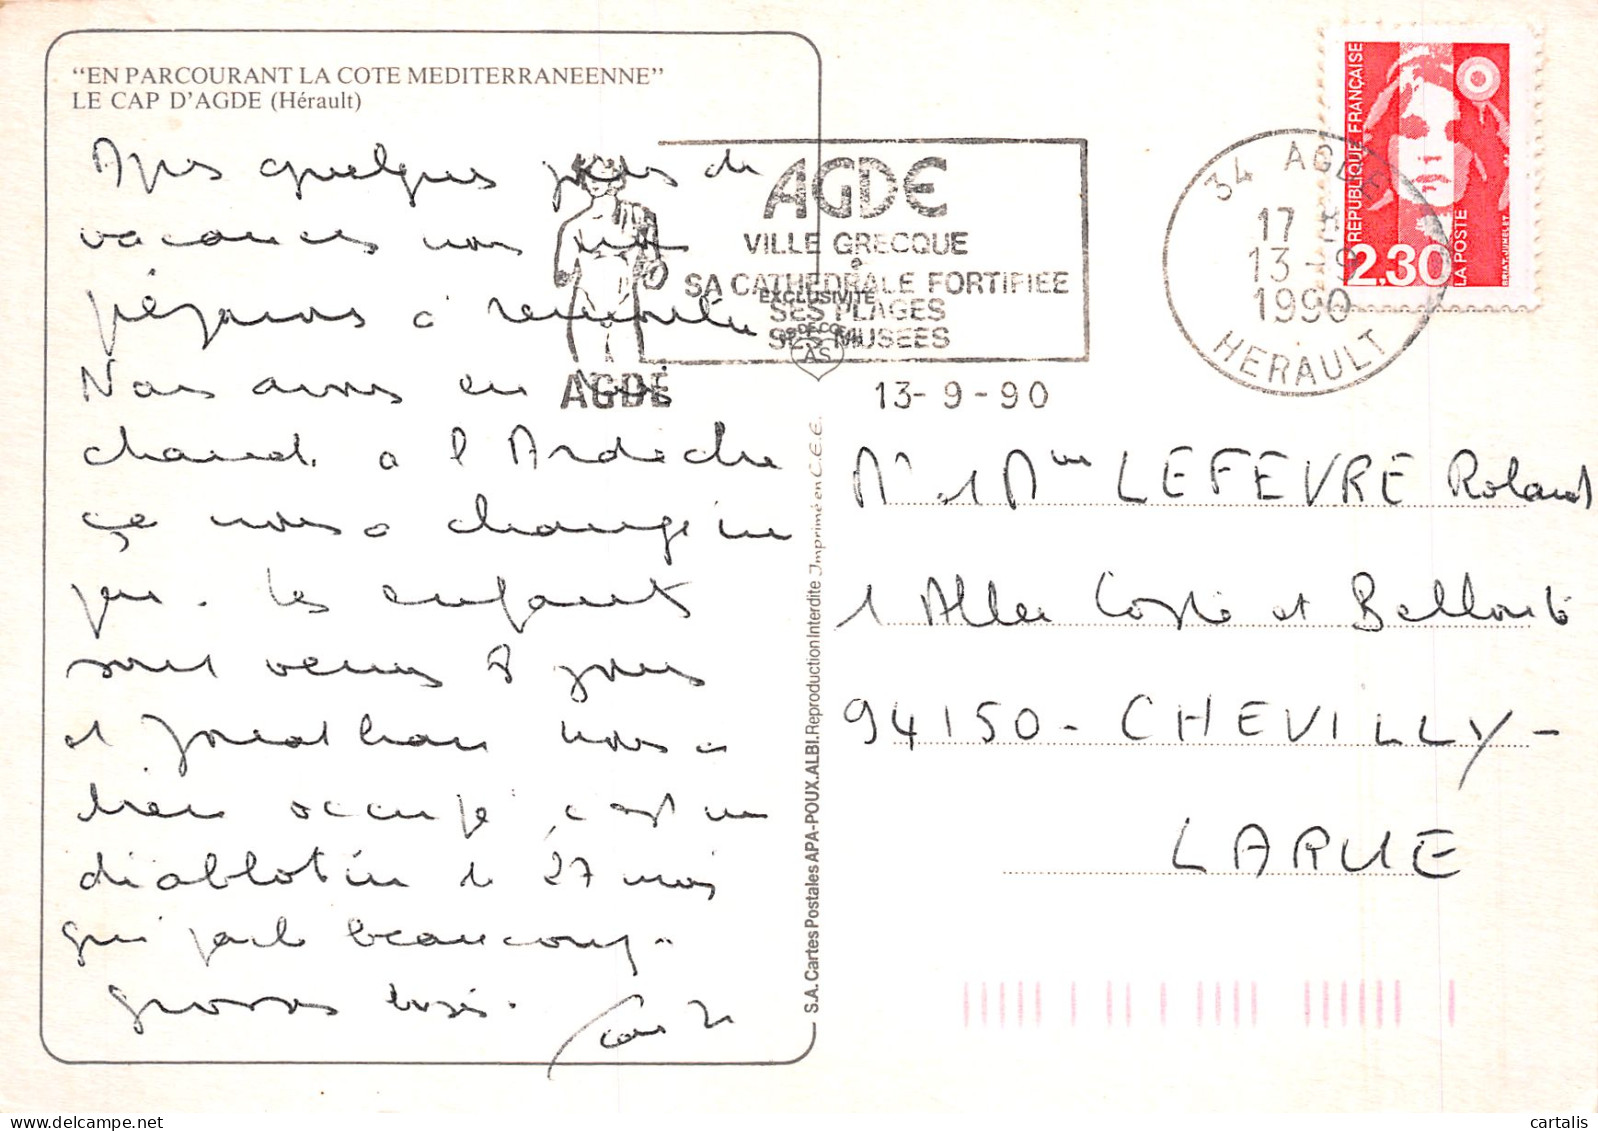 "EN PARCOURANT LA COTE MEDITERRANEENNE"
LE CAP D'AGDE (Hérault)
Après quelques jours de
vacances nous nous
préparons à remonter
Nous avons eu
chaud. a l Ardèche
ça nous a changé un
peu. Les enfants
sont venus 8 jours
et Jonathan nous a
bien occupé, c'est un
diablotin de 27 mois
qui parle beaucoup.
grosses bises.
AGDE
AGDE
VILLE GRECQUE
SA CATHEDRALE FORTIFIEE
SES PLAGES
SES MUSEES
13-9-90
EXCLUSIVITE
AS DE CŒUR
AS
34 AGDE
17 H
13-9
1990
HERAULT
REPUBLIQUE FRANÇAISE
2,30
LA POSTE
BRIAT-JUMELET
S.A. Cartes Postales APA-POUX.ALBI.Reproduction Interdite Imprimé en C.E.E.
Mr et Mme LEFEVRE Roland
1 Allée Coste et Bellonte
94150 - CHEVILLY -
LARUE
cartalis